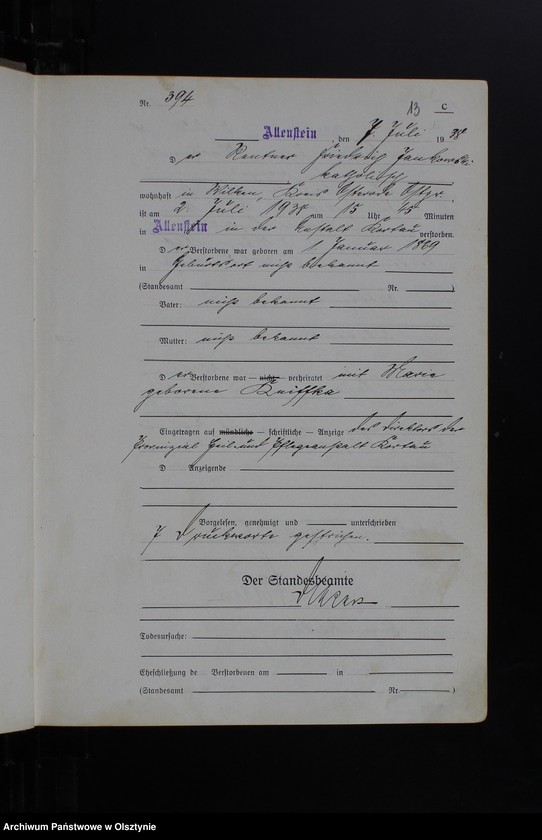 Nr. 394
13 C
Allenstein, den 7. Juli 1938
Der Rentner Friedrich Jankowski
katholisch
wohnhaft in Wilken, Kreis Osterode Ostpr.
ist am 2. Juli 1938 um 15 Uhr 45 Minuten
in Allenstein in der Anstalt Kortau verstorben.
Der Verstorbene war geboren am 1. Januar 1869
in Geburtsort nicht bekannt
(Standesamt Nr. )
Vater: nicht bekannt
Mutter: nicht bekannt
Der Verstorbene war — nicht — verheiratet mit Marie
geborene Kniffka
Eingetragen auf mündliche — schriftliche — Anzeige des Direktors der
Provinzial Heil- und Pflegeanstalt Kortau
D Anzeigende
Vorgelesen, genehmigt und unterschrieben
7 Druckworte gestrichen.
Der Standesbeamte
Todesursache:
Eheschließung de Verstorbenen am in
(Standesamt Nr. )
Archiwum Państwowe w Olsztynie